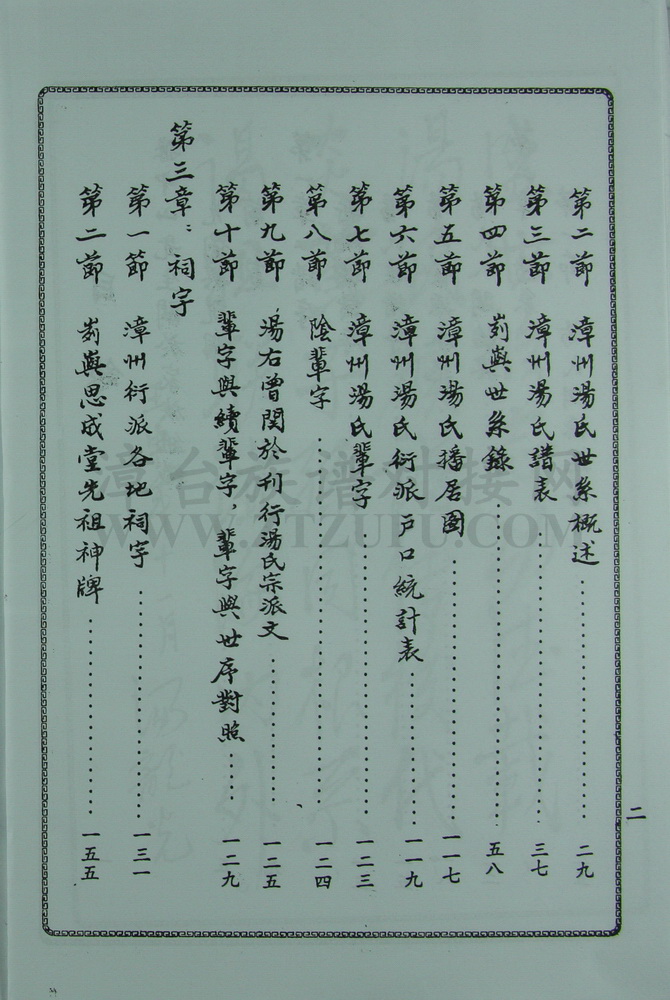 第二節 漳州湯氏世系概述……二九
第三節 漳州湯氏譜表……三七
第四節 崱與世系錄……五八
第五節 漳州湯氏播居图……一一七
第六節 漳州湯氏衍派户口統計表……一一九
第七節 漳州湯氏輩字……一二三
第八節 陰輩字……一二四
第九節 湯右曾関於刊行湯氏宗派文……一二五
第十節 輩字與續輩字，輩字與世序對照……一二九
第三章：祠宇
第一節 漳州衍派各地祠宇……一三一
第二節 崱與思成堂先祖神牌……一五五
二
漳台族谱对接网
WWW.ZTZUPU.COM